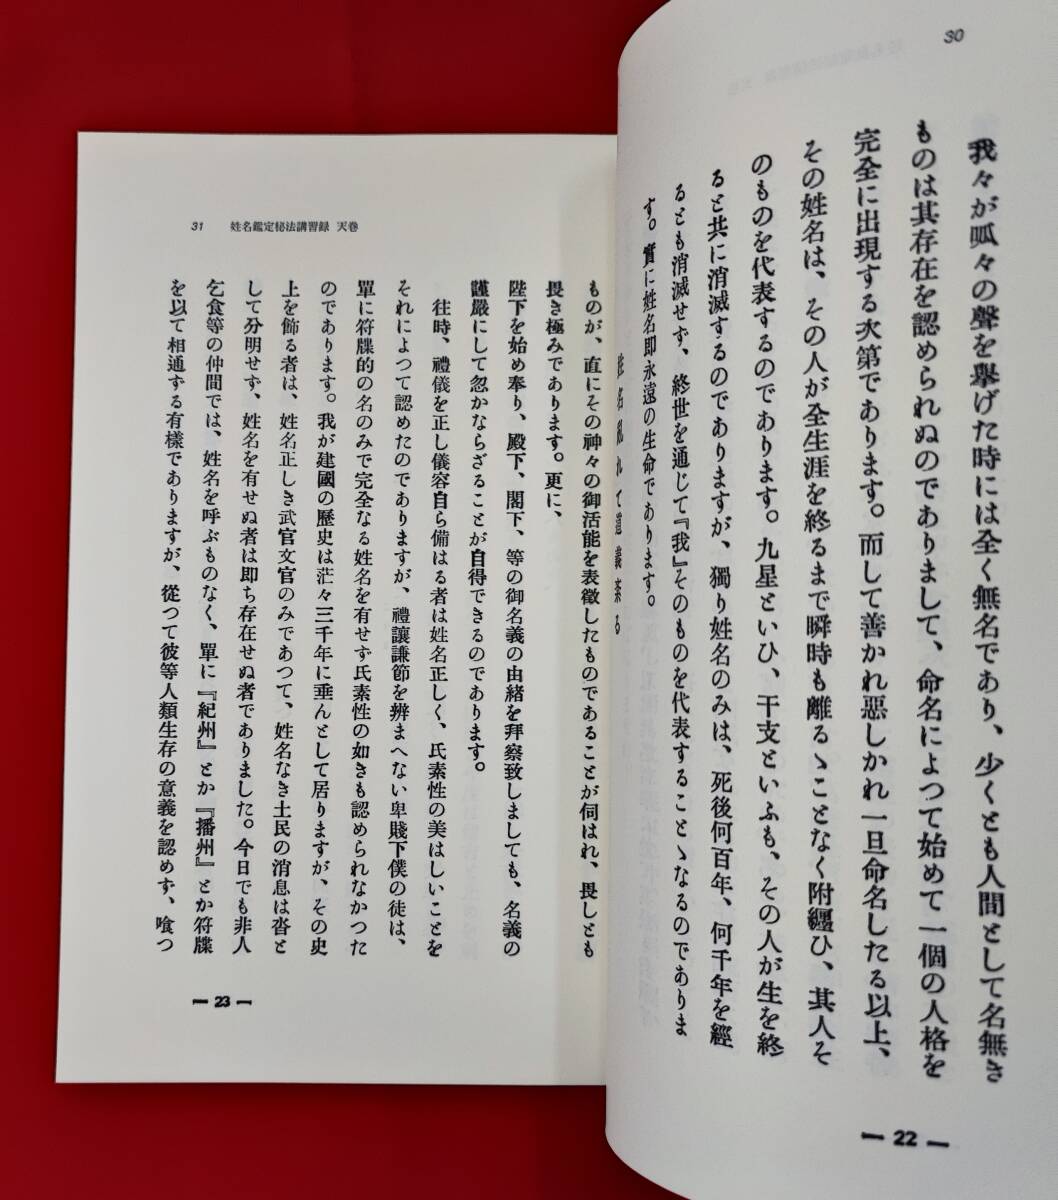 30
我々が呱々の聲を擧げた時には全く無名であり、少くとも人間として名無き
ものは其存在を認められぬのでありまして、命名によつて始めて一個の人格を
完全に出現する次第であります。而して善かれ惡しかれ一旦命名したる以上、
その姓名は、その人が全生涯を終るまで瞬時も離るゝことなく附纒ひ、其人そ
のものを代表するのであります。九星といひ、干支といふも、その人が生を終
ると共に消滅するのでありますが、獨り姓名のみは、死後何百年、何千年を經
るとも消滅せず、終世を通じて『我』そのものを代表することゝなるのでありま
す。實に姓名即永遠の生命であります。
22
31 姓名鑑定秘法講習録 天巻
姓名紊れて道義紊る
ものが、直にその神々の御活能を表徵したものであることが伺はれ、畏しとも
畏き極みであります。更に、
陛下を始め奉り、殿下、閣下、等の御名義の由緒を拜察致しましても、名義の
謹嚴にして忽かならざることが自得できるのであります。
往時、禮儀を正し儀容自ら備はる者は姓名正しく、氏素性の美はしいことを
それによつて認めたのでありますが、禮讓謙節を辨まへない卑賤下僕の徒は、
單に符牒的の名のみで完全なる姓名を有せず氏素性の如きも認められなかつた
のであります。我が建國の歷史は茫々三千年に垂んとして居りますが、その史
上を飾る者は、姓名正しき武官文官のみであつて、姓名なき土民の消息は沓と
して分明せず、姓名を有せぬ者は即ち存在せぬ者でありました。今日でも非人
乞食等の仲間では、姓名を呼ぶものなく、單に『紀州』とか『播州』とか符牒
を以て相通ずる有樣でありますが、從つて彼等人類生存の意義を認めず、喰つ
23